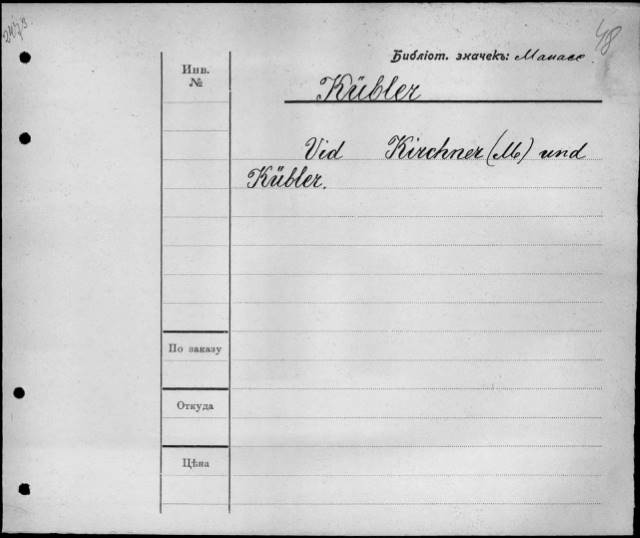 48
Библіот. значекъ: Манасс
Инв.
№
Kübler
Vid Kirchner (M) und
Kübler.
По заказу
Откуда
Цѣна